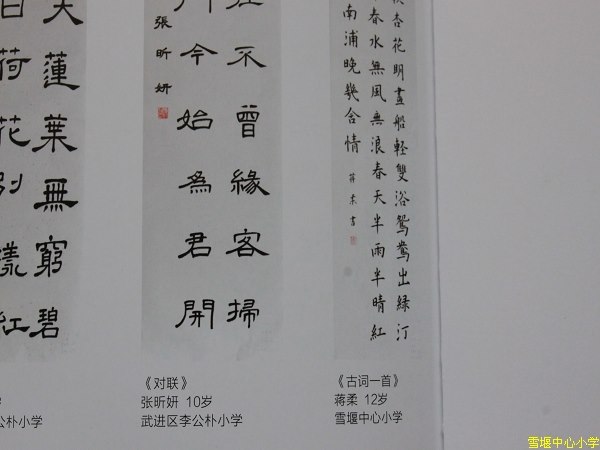 天蓮葉無窮碧
日荷花別樣紅
不曾緣客掃
今始為君開
張昕妍
杏花明畫船輕雙浴鴛鴦出綠汀
春水無風無浪春天半雨半晴紅
南浦晚幾含情
蔣柔書
公朴小学
《对联》
张昕妍 10岁
武进区李公朴小学
《古词一首》
蒋柔 12岁
雪堰中心小学
雪堰中心小学